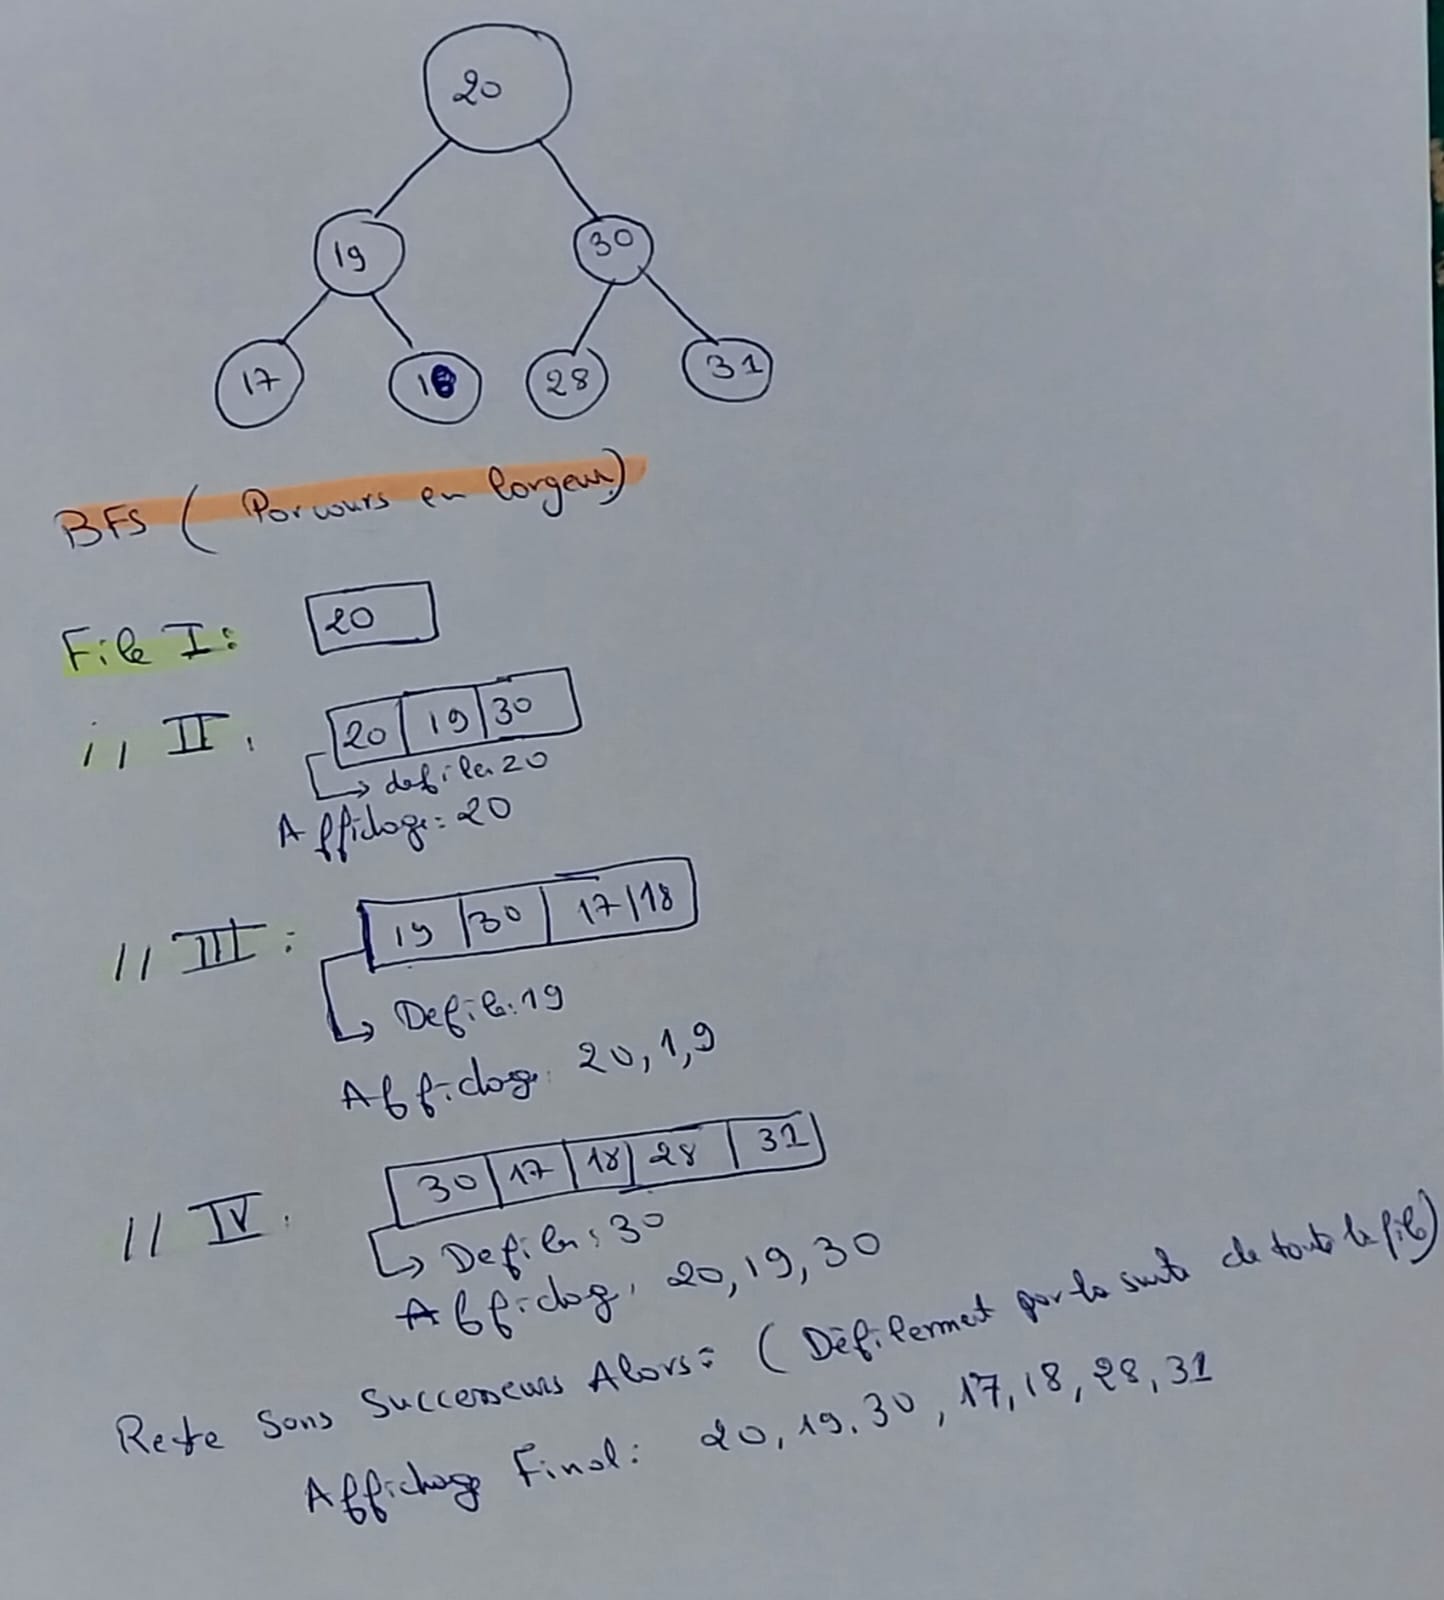 20
19 30
17 18 28 31
BFS ( Parcours en largeur)
File I: 20
// II: 20 | 19 | 30
defiler 20
Affichage: 20
// III: 19 | 30 | 17 | 18
Defile: 19
Affichage: 20, 1,9
// IV: 30 | 17 | 18 | 28 | 31
Defiler: 30
Affichag: 20, 19, 30
Reste Sans Successeurs Alors: ( Défilermet par la suite de toute la file)
Affichage Final: 20, 19, 30, 17, 18, 28, 31